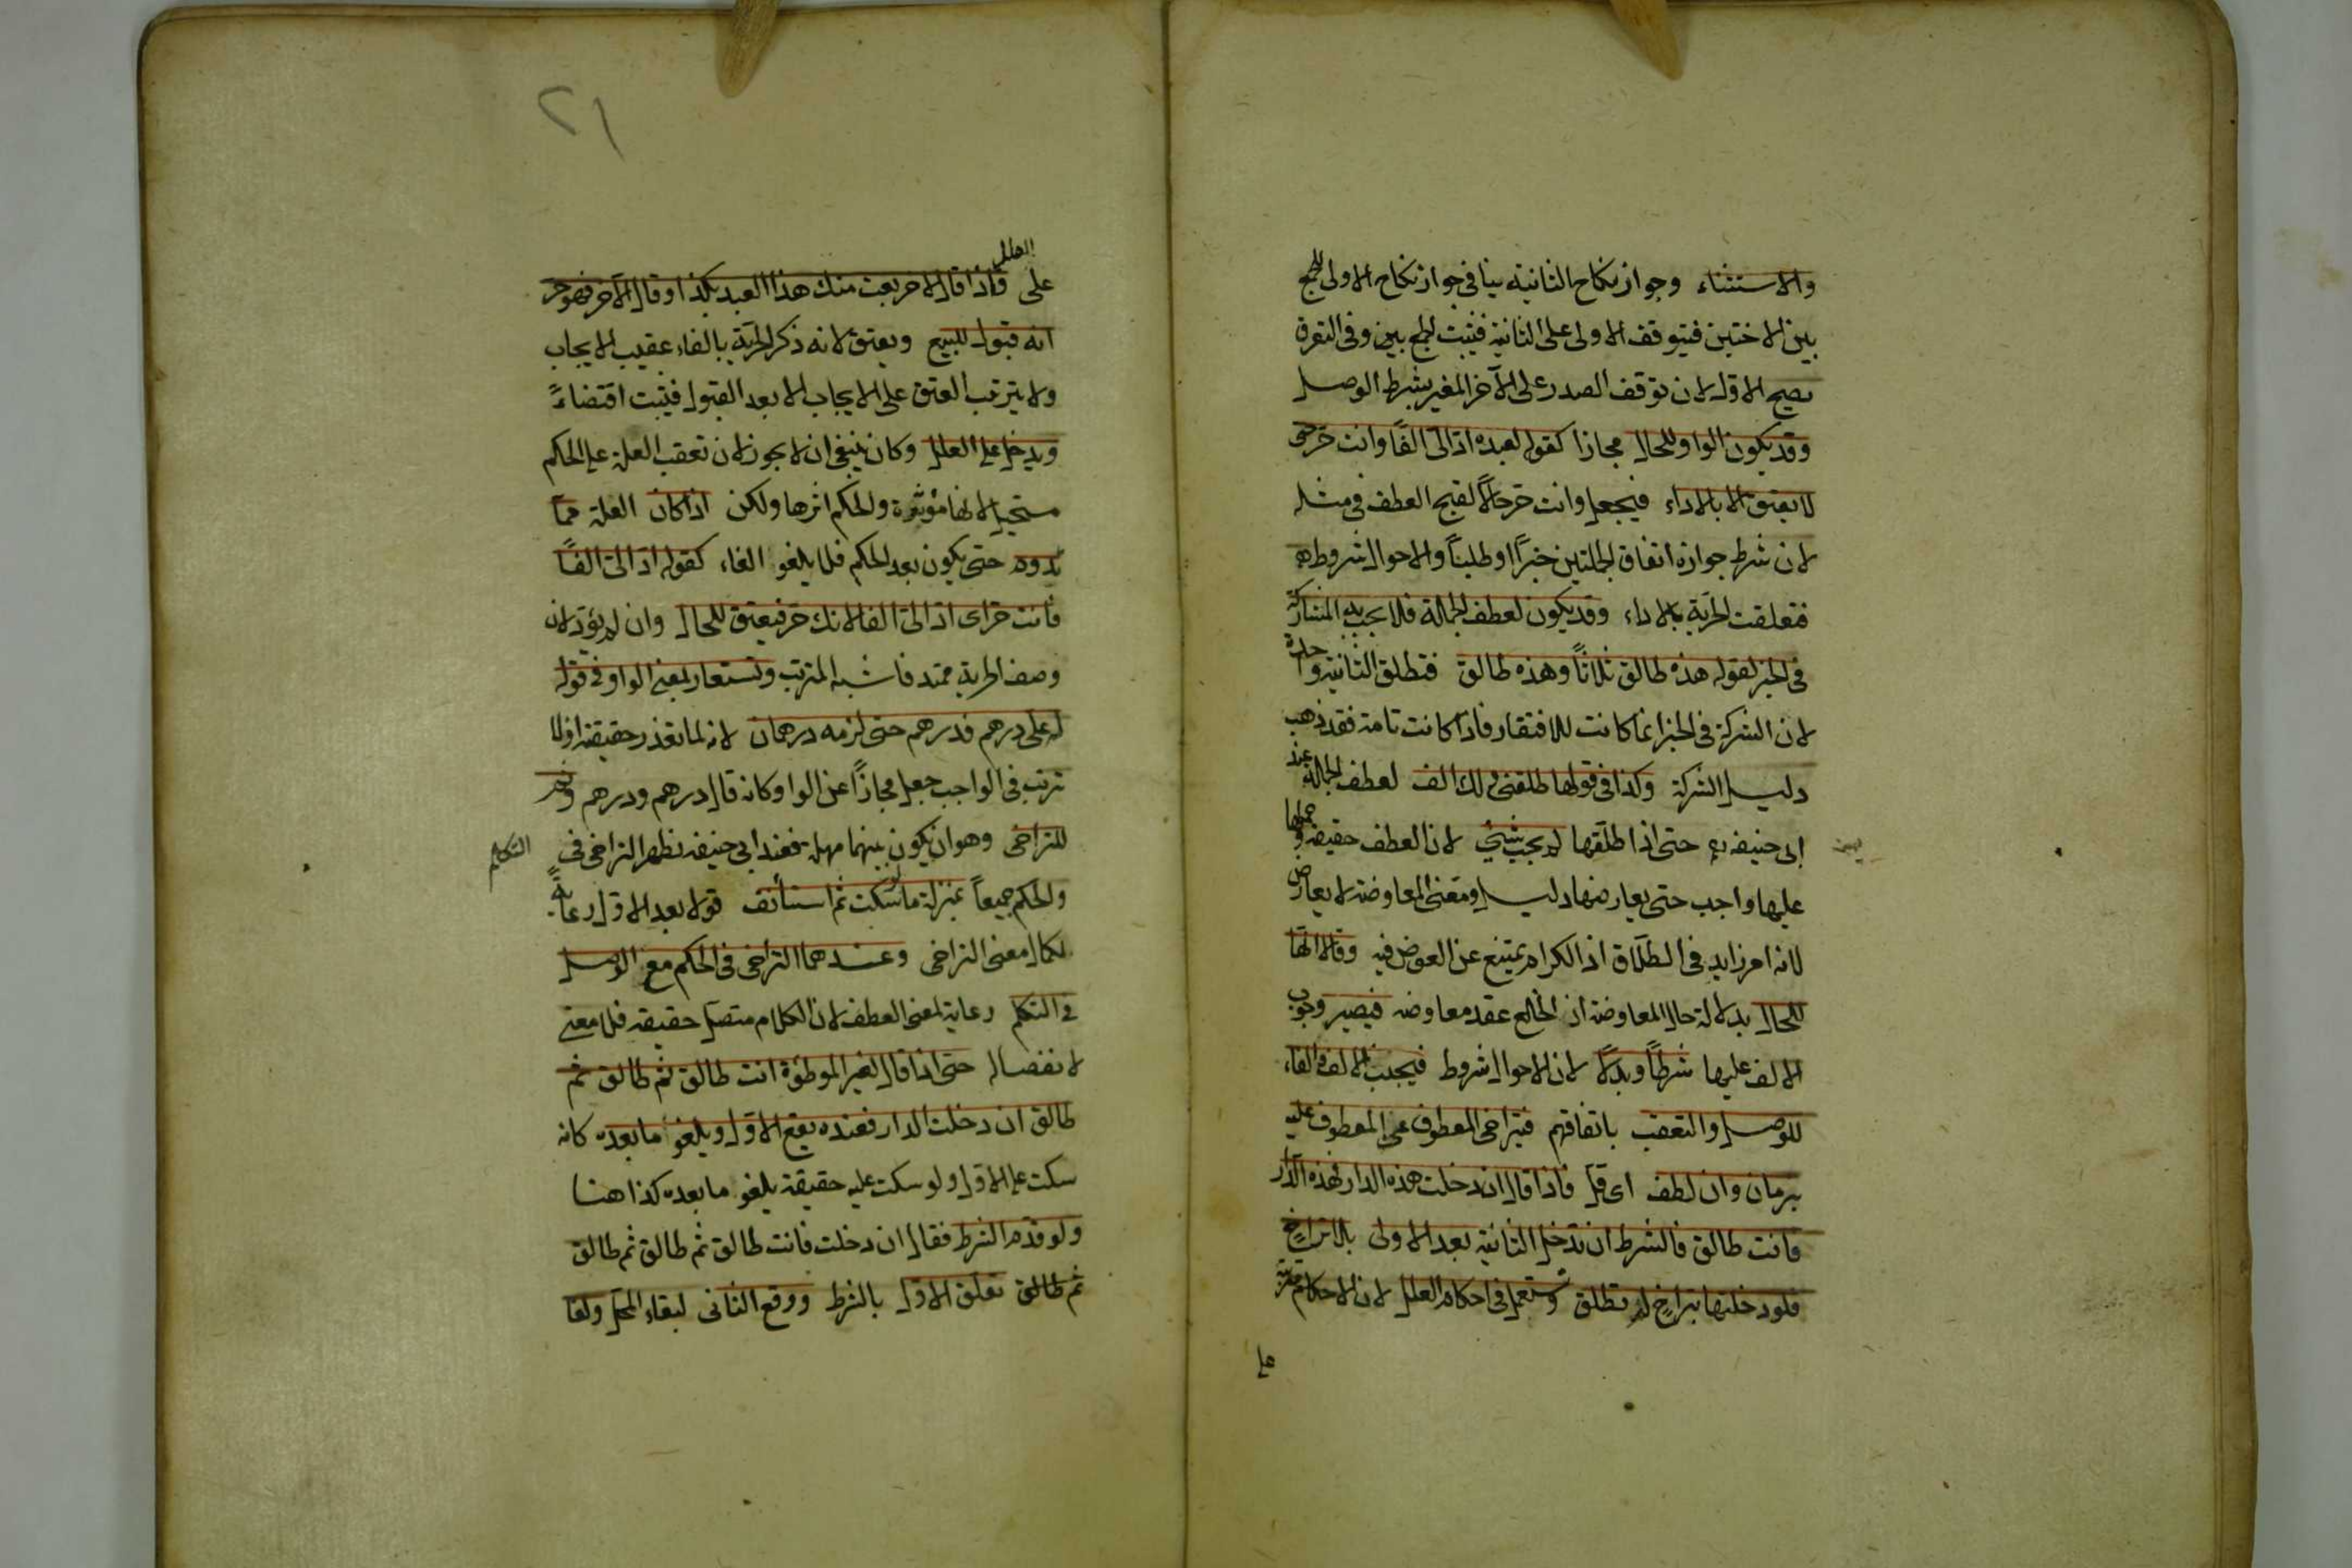 والاستثناء وجواز نكاح الثانية ينافى جواز نكاح الاولى للجمع
بين الاختين فيتوقف الاولى على الثانية فيثبت الجمع بين وفى التفرقة
يصح الاول لان توقف الصدر على الآخر المغير بشرط الوصل
وقد يكون الواو للحال مجازا كقوله لعبده اد الىّ الفًا وانت حر حتى
لا يعتق الا بالاداء فيجعل وانت حر حالًا لقبح العطف فى مثله
لان شرط جوازه اتفاق الجملتين خبرًا وطلبًا والاحوال شروط
فتعلقت الحرية بالاداء وقد يكون لعطف الجملة فلا يجب به المشاركة
فى الخبر لقوله هذه طالق ثلاثًا وهذه طالق فتطلق الثانية واحدة
لان الشركة فى الخبر انما كانت للافتقار فاذا كانت تامة فقد ذهب
دليل الشركة وكذا فى قولها طلقنى ولك الف لعطف الجملة عند
ابى حنيفه رح حتى اذا طلقها لم يجب شئ لان العطف حقيقة وحملها
عليها واجب حتى يعارضها دليل ومعنى المعاوضة لا يعارض
لانه امر زايد فى الطلاق اذ الكرام يمتنع عن العوض فيه وقالا انها
للحال بدلالة حال المعاوضة اذ الخلع عقد معاوضه فيصير وجوب
الالف عليها شرطًا وبدلًا لان الاحوال شروط فيجب الالف والفاء
للوصل والتعقب باتفاقهم فيتراخى المعطوف عن المعطوف عليه
بزمان وان لطف اى قل فاذا قال ان دخلت هذه الدار فهذه الدار
فانت طالق فالشرط ان تدخل الثانية بعد الاولى بلا تراخٍ
فلو دخلتها بتراخ لم تطلق وتستعمل فى احكام العلل لان الاحكام مترتبة
على
٢١
العلل
على فاذا قال لآخر بعت منك هذا العبد بكذا وقال الآخر فهو حر
انه قبول للبيع ويعتق لانه ذكر الحرية بالفاء عقيب الايجاب
ولا يترتب العتق على الايجاب الا بعد القبول فيثبت اقتضاءً
ويدخل على العلل وكان ينبغى ان لا يجوز لان تعقب العلة على الحكم
مستحيل لانها مؤثرة والحكم اثرها ولكن اذا كان العلة مما
تدوم حتى يكون بعد الحكم فلا يلغو الفاء كقوله اد الىّ الفًا
فانت حر اى اد الىّ الفا لانك حر فيعتق للحال وان لم يؤد لان
وصف الحرية ممتد فاشبه المترتب وتستعار لمعنى الواو فى قوله
له على درهم فدرهم حتى لزمه درهمان لانه لما تعذر حقيقة اذ لا
ترتب فى الواجب جعل مجازًا عن الواو وكانه قال درهم ودرهم وثم
للتراخى وهو ان يكون بينهما مهلة فعند ابى حنيفه يظهر التراخى فى التكلم
والحكم جميعاً بمنزلة ما لو سكت ثم استأنف قولا بعد الاول رعايةً
لكمال معنى التراخى وعندهما التراخى فى الحكم مع الوصل
فى التكلم رعاية لمعنى العطف لان الكلام متصل حقيقة فلا معنى
لانفصاله حتى اذا قال لغير الموطؤة انت طالق ثم طالق ثم
طالق ان دخلت الدار فعنده يقع الاول ويلغو ما بعده كانه
سكت على الاول ولو سكت عليه حقيقة يلغو ما بعده كذا هنا
ولو قدم الشرط فقال ان دخلت فانت طالق ثم طالق ثم طالق
ثم طالق تعلق الاول بالشرط ووقع الثانى لبقاء المحل ولغا